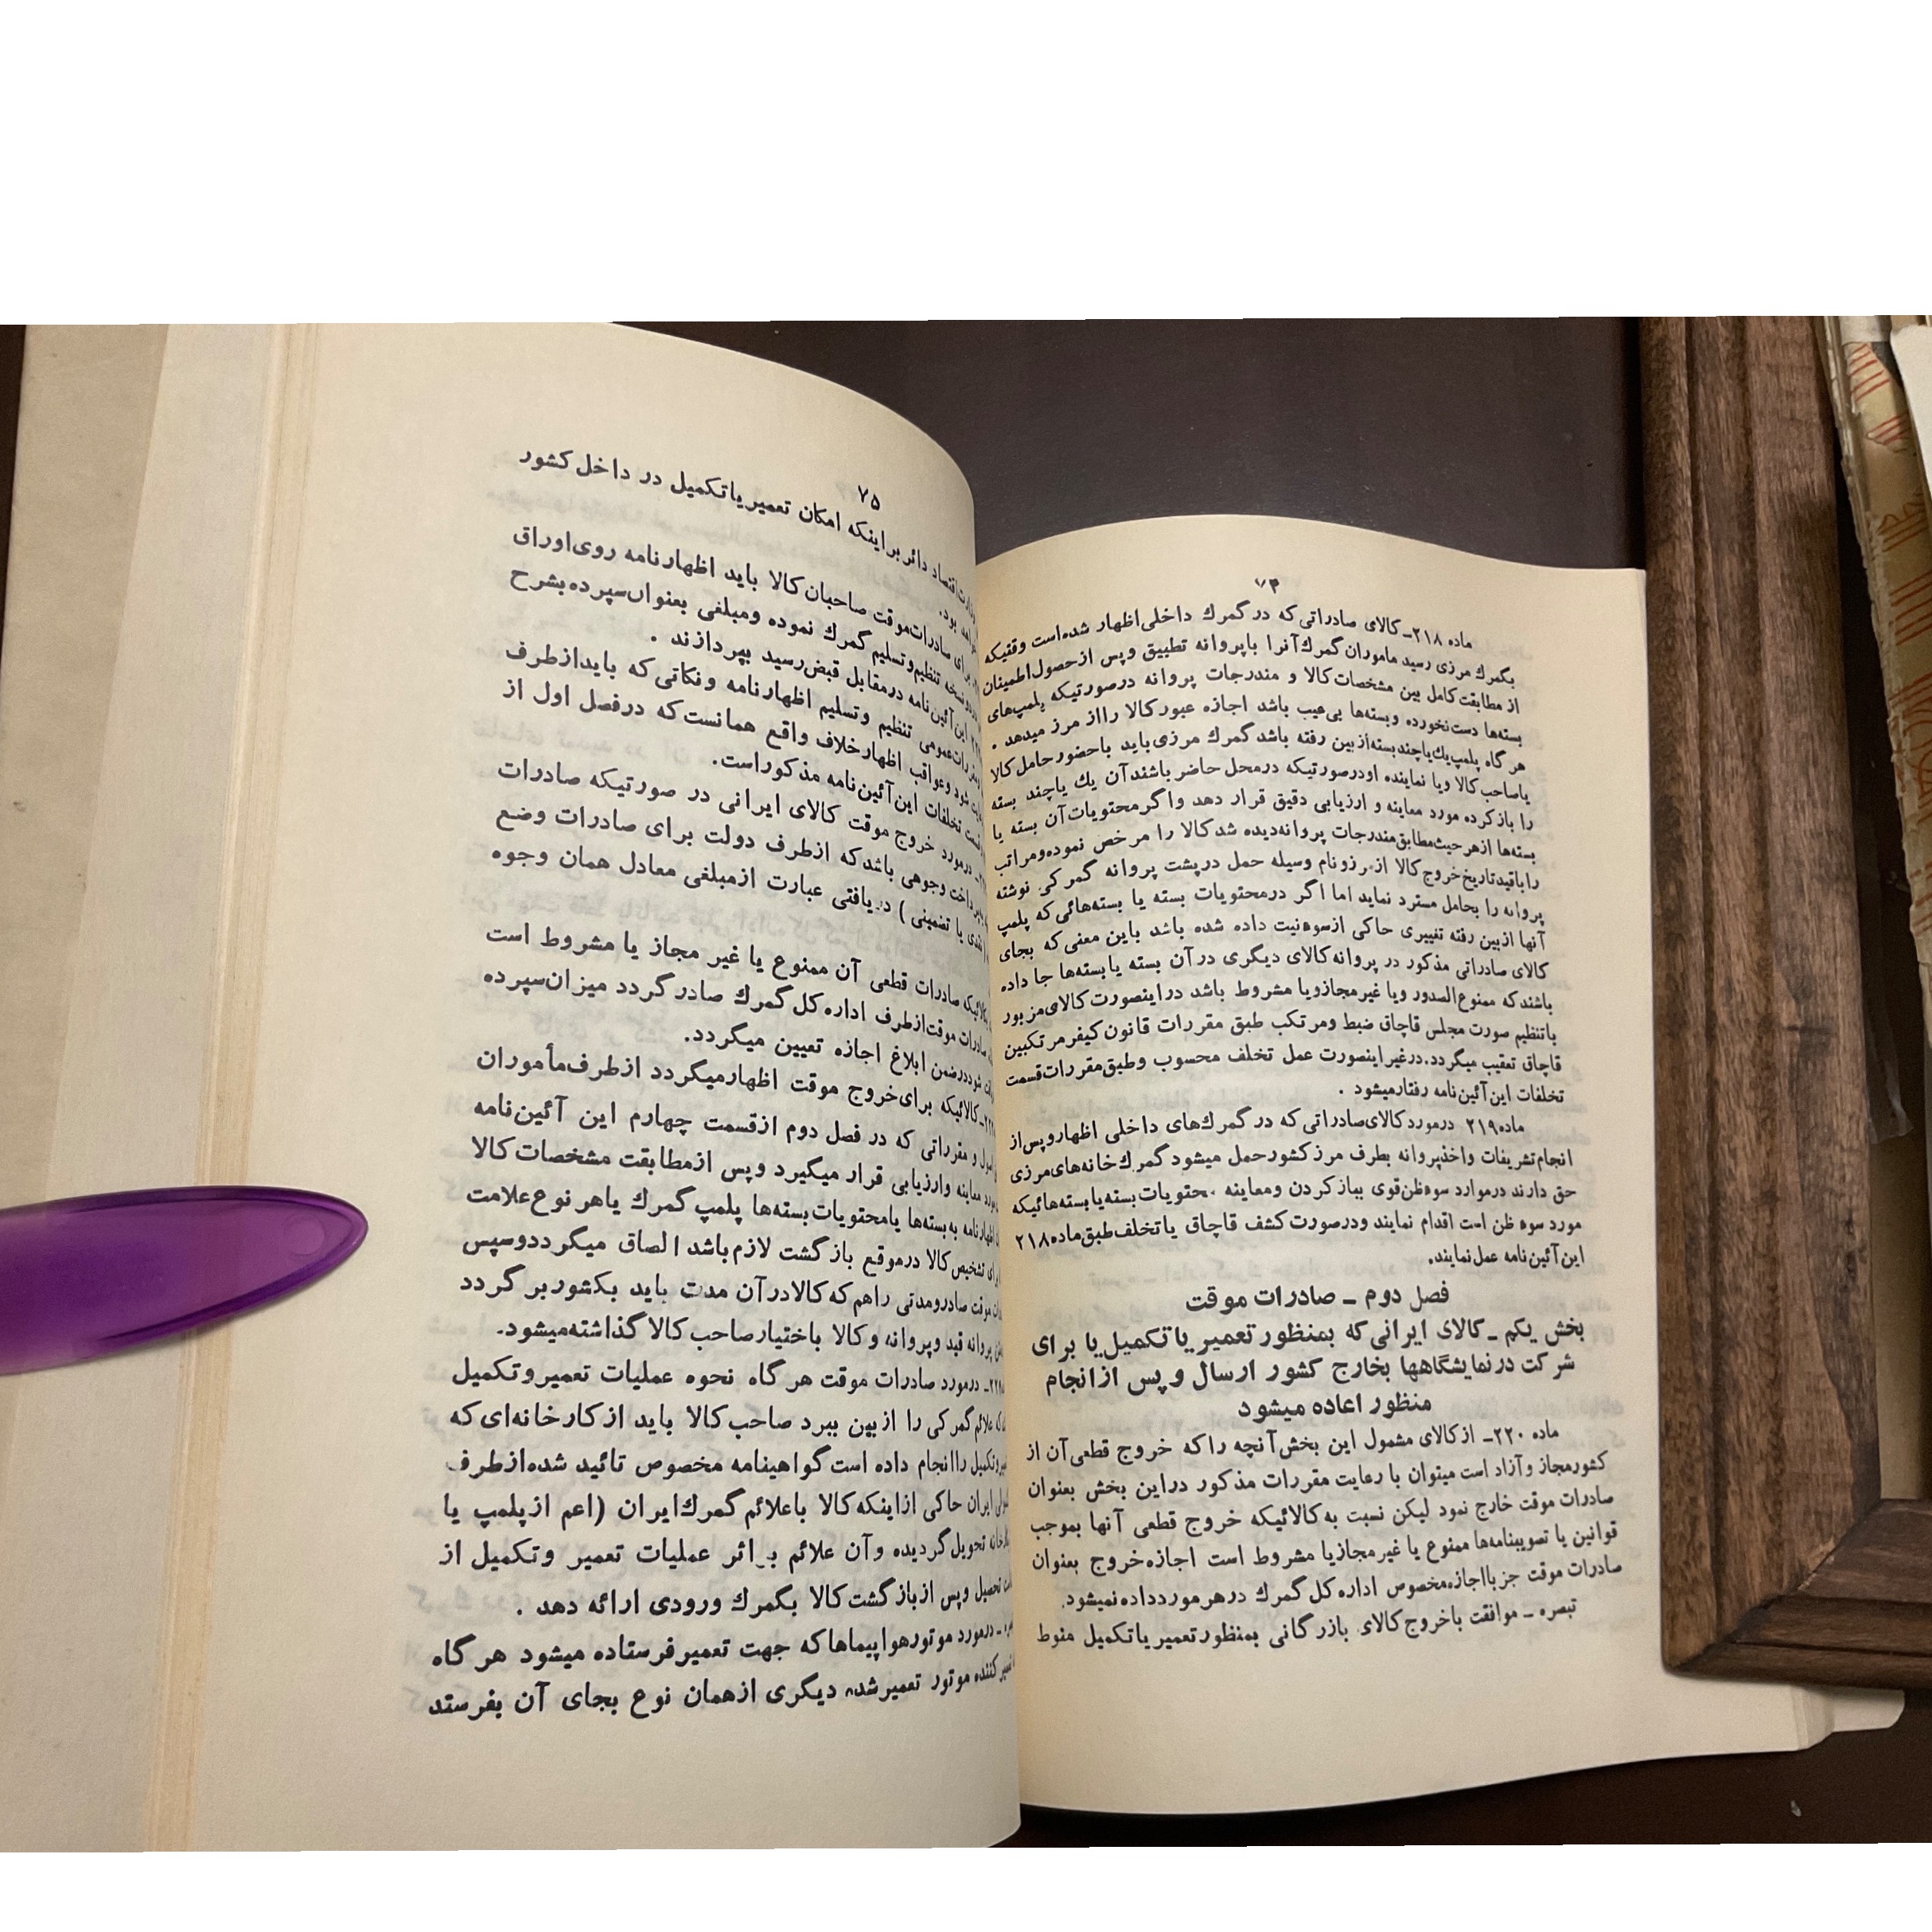 ۷۴
ماده ۲۱۸ـ کالای صادراتی که در گمرك داخلی اظهار شده است وقتیکه
بگمرك مرزی رسید ماموران گمرك آنرا با پروانه تطبیق و پس از حصول اطمینان
از مطابقت کامل بین مشخصات کالا و مندرجات پروانه درصورتیکه پلمپ‌های
بسته‌ها دست نخورده و بسته‌ها بی‌عیب باشد اجازه عبور کالا را از مرز میدهد .
هر گاه پلمپ یك یا چند بسته از بین رفته باشد گمرك مرزی باید با حضور حامل کالا
یا صاحب کالا و یا نماینده او درصورتیکه در محل حاضر باشند آن یك یا چند بسته
را باز کرده مورد معاینه و ارزیابی دقیق قرار دهد و اگر محتویات آن بسته یا
بسته‌ها از هر حیث مطابق مندرجات پروانه دیده شد کالا را مرخص نموده و مراتب
را با قید تاریخ خروج کالا از مرز و نام وسیله حمل در پشت پروانه گمرکی نوشته
پروانه را بحامل مسترد نماید اما اگر در محتویات بسته یا بسته‌هائی که پلمپ
آنها از بین رفته تغییری حاکی از سوء نیت داده شده باشد باین معنی که بجای
کالای صادراتی مذکور در پروانه کالای دیگری در آن بسته یا بسته‌ها جا داده
باشند که ممنوع‌الصدور و یا غیر مجاز و یا مشروط باشد در اینصورت کالای مزبور
با تنظیم صورت مجلس قاچاق ضبط و مرتکب طبق مقررات قانون کیفر مرتکبین
قاچاق تعقیب میگردد. در غیر اینصورت عمل تخلف محسوب و طبق مقررات قسمت
تخلفات این آئین‌نامه رفتار میشود .
ماده ۲۱۹ در مورد کالای صادراتی که در گمرك‌های داخلی اظهار و پس از
انجام تشریفات و اخذ پروانه بطرف مرز کشور حمل میشود گمرك خانه‌های مرزی
حق دارند در موارد سوء ظن قوی بباز کردن و معاینه محتویات بسته یا بسته‌هائیکه
مورد سوء ظن است اقدام نمایند و درصورت کشف قاچاق یا تخلف طبق ماده ۲۱۸
این آئین‌نامه عمل نمایند.
فصل دوم ـ صادرات موقت
بخش یکم ـ کالای ایرانی که بمنظور تعمیر یا تکمیل یا برای
شرکت در نمایشگاهها بخارج کشور ارسال و پس از انجام
منظور اعاده میشود
ماده ۲۲۰ـ از کالای مشمول این بخش آنچه را که خروج قطعی آن از
کشور مجاز و آزاد است میتوان با رعایت مقررات مذکور در این بخش بعنوان
صادرات موقت خارج نمود لیکن نسبت به کالائیکه خروج قطعی آنها بموجب
قوانین یا تصویبنامه‌ها ممنوع یا غیر مجاز یا مشروط است اجازه خروج بعنوان
صادرات موقت جز با اجازه مخصوص اداره کل گمرك در هر مورد داده نمیشود.
تبصره ـ موافقت با خروج کالای بازرگانی بمنظور تعمیر یا تکمیل منوط
۷۵
اقتصاد دائر بر اینکه امکان تعمیر یا تکمیل در داخل کشور
بود.
برای صادرات موقت صاحبان کالا باید اظهارنامه روی اوراق
نسخه تنظیم و تسلیم گمرك نموده و مبلغی بعنوان سپرده بشرح
این آئین‌نامه در مقابل قبض رسید بپردازند .
عمومی تنظیم و تسلیم اظهارنامه و نکاتی که باید از طرف
شود و عواقب اظهار خلاف واقع همانست که در فصل اول از
تخلفات این آئین‌نامه مذکور است.
در مورد خروج موقت کالای ایرانی در صورتیکه صادرات
پرداخت وجوهی باشد که از طرف دولت برای صادرات وضع
نقدی یا تضمینی ) دریافتی عبارت از مبلغی معادل همان وجوه
صادرات قطعی آن ممنوع یا غیر مجاز یا مشروط است
صادرات موقت از طرف اداره کل گمرك صادر گردد میزان سپرده
شود در ضمن ابلاغ اجازه تعیین میگردد.
کالائیکه برای خروج موقت اظهار میگردد از طرف مأموران
و مقرراتی که در فصل دوم از قسمت چهارم این آئین‌نامه
مورد معاینه و ارزیابی قرار میگیرد و پس از مطابقت مشخصات کالا
اظهارنامه به بسته‌ها یا محتویات بسته‌ها پلمپ گمرك یا هر نوع علامت
برای تشخیص کالا در موقع بازگشت لازم باشد الصاق میگردد و سپس
موقت صادر و مدتی را هم که کالا در آن مدت باید بکشور بر گردد
پروانه قید و پروانه و کالا باختیار صاحب کالا گذاشته میشود.
در مورد صادرات موقت هر گاه نحوه عملیات تعمیر و تکمیل
علائم گمرکی را از بین ببرد صاحب کالا باید از کارخانه‌ای که
تکمیل را انجام داده است گواهینامه مخصوص تائید شده از طرف
ایران حاکی از اینکه کالا با علائم گمرك ایران (اعم از پلمپ یا
تحویل گردیده و آن علائم بر اثر عملیات تعمیر و تکمیل از
تحصیل و پس از بازگشت کالا بگمرك ورودی ارائه دهد .
ـ در مورد موتور هواپیماها که جهت تعمیر فرستاده میشود هر گاه
موتور تعمیر شده دیگری از همان نوع بجای آن بفرستد